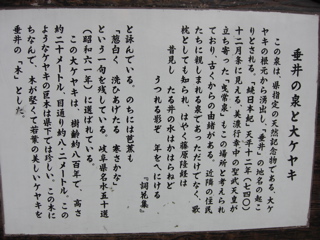 垂井の泉と大ケヤキ
この泉は、県指定の天然記念物である。大ケ
ヤキの根元から湧出し、「垂井」の地名の起こ
りとされる。「続日本紀」天平十二年(七四〇)
十二月条に見える、美濃行幸中の聖武天皇が
立ち寄った「曳常泉」もこの場所と考えられ
ており、古くからの由緒がある。近隣の住民
たちに親しまれる泉であっただけでなく、歌
枕としても知られ、はやく藤原隆経は
昔見し たる井の水はかはらねど
うつれる影ぞ 年をへにける
『詞花集』
と詠んでいる。のちには芭蕉も
「葱白く 洗ひあげたる 寒さかな」
という一句を残している。岐阜県名水五十選
(昭和六一年)に選ばれている。
この大ケヤキは、樹齢約八百年で、高さ
約二十メートル、目通り約八・二メートル。この
ようなケヤキの巨木は県下では珍しい。この木に
ちなんで、木が堅くて若葉の美しいケヤキを
垂井の「木」とした。